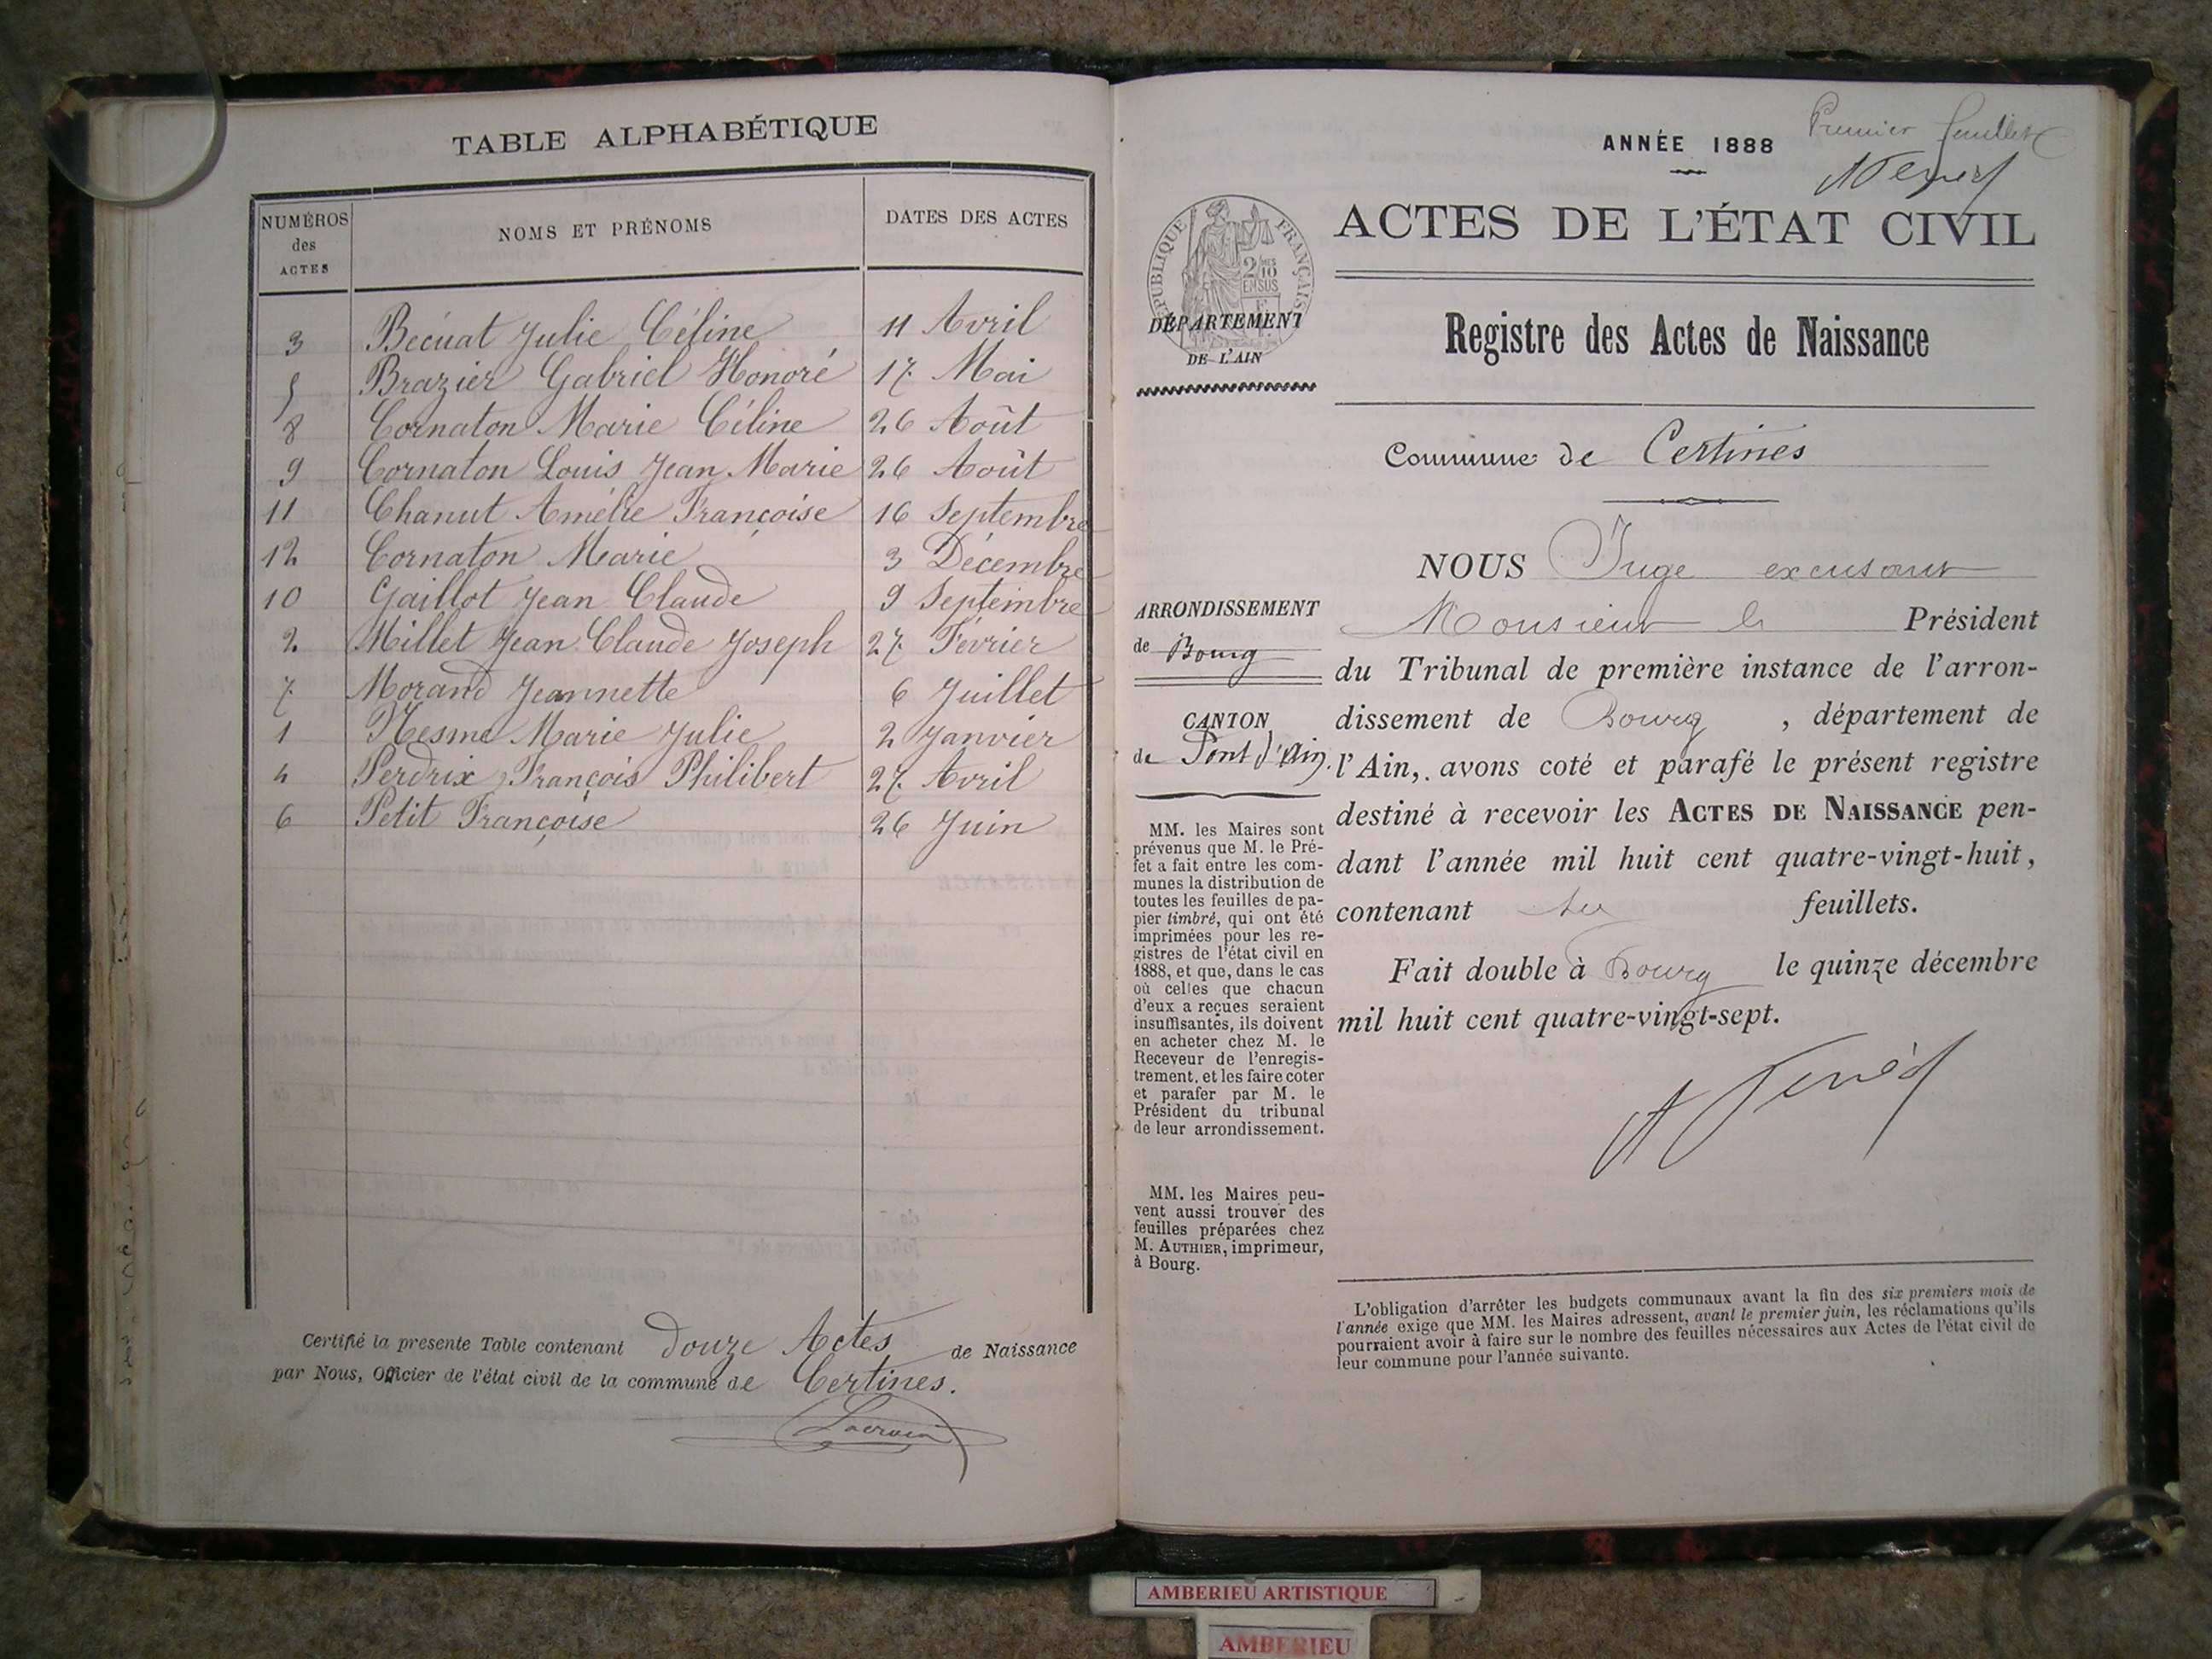 TABLE ALPHABÉTIQUE
NUMÉROS des ACTES NOMS ET PRÉNOMS DATES DES ACTES
3 Becuat Julie Céline 11 Avril
5 Brazier Gabriel Honoré 17 Mai
8 Cornaton Marie Céline 26 Août
9 Cornaton Louis Jean Marie 26 Août
11 Chanut Amélie Françoise 16 Septembre
12 Cornaton Marie 3 Décembre
10 Gaillot Jean Claude 9 Septembre
2 Millet Jean Claude Joseph 27 Février
7 Morand Jeannette 6 Juillet
1 Nesme Marie Julie 2 Janvier
4 Perdrix François Philibert 27 Avril
6 Petit Françoise 26 Juin
Certifié la presente Table contenant douze Actes de Naissance
par Nous, Officier de l'état civil de la commune de Certines.
Lacroix
Premier feuillet
ANNÉE 1888
ACTES DE L'ÉTAT CIVIL
RÉPUBLIQUE FRANÇAISE
DÉPARTEMENT
DE L'AIN
Registre des Actes de Naissance
Commune de Certines
ARRONDISSEMENT
de Bourg
CANTON
de Pont d'Ain.
MM. les Maires sont
prévenus que M. le Pré-
fet a fait entre les com-
munes la distribution de
toutes les feuilles de pa-
pier timbré, qui ont été
imprimées pour les re-
gistres de l'état civil en
1888, et que, dans le cas
où celles que chacun
d'eux a reçues seraient
insuffisantes, ils doivent
en acheter chez M. le
Receveur de l'enregis-
trement, et les faire coter
et parafer par M. le
Président du tribunal
de leur arrondissement.
MM. les Maires peu-
vent aussi trouver des
feuilles préparées chez
M. AUTHIER, imprimeur,
à Bourg.
NOUS Juge excusant
Monsieur le Président
du Tribunal de première instance de l'arron-
dissement de Bourg , département de
l'Ain, avons coté et parafé le présent registre
destiné à recevoir les ACTES DE NAISSANCE pen-
dant l'année mil huit cent quatre-vingt-huit,
contenant feuillets.
Fait double à Bourg le quinze décembre
mil huit cent quatre-vingt-sept.
L'obligation d'arrêter les budgets communaux avant la fin des six premiers mois de
l'année exige que MM. les Maires adressent, avant le premier juin, les réclamations qu'ils
pourraient avoir à faire sur le nombre des feuilles nécessaires aux Actes de l'état civil de
leur commune pour l'année suivante.
AMBERIEU ARTISTIQUE
AMBERIEU